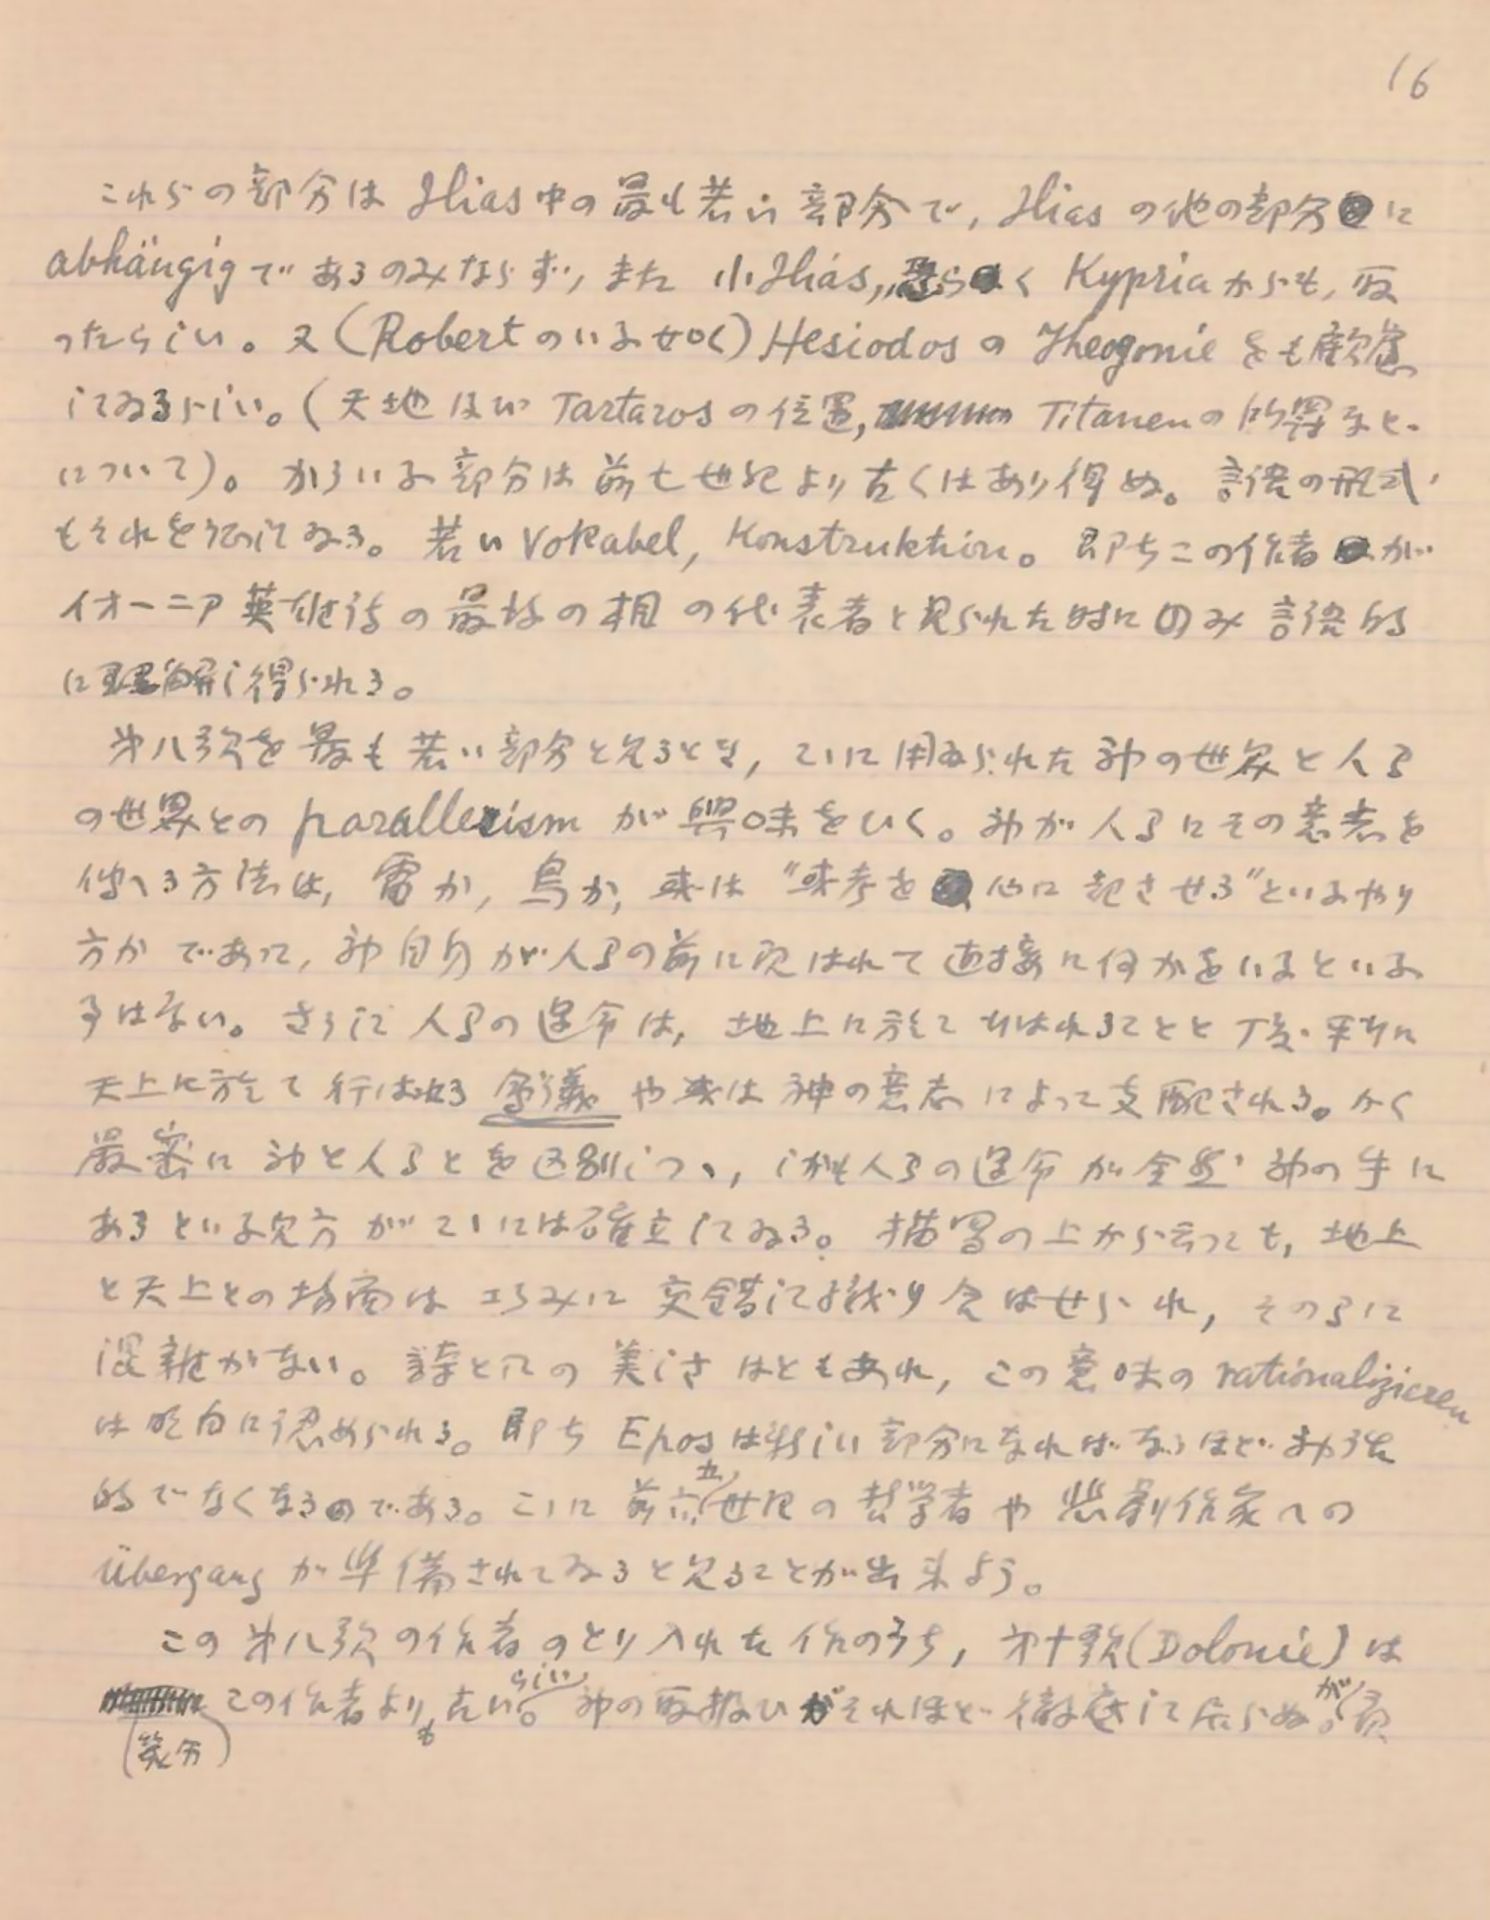 16
これらの部分は Ilias 中の最も若い部分で, Ilias の他の部分に
abhängig であるのみならず, また 小Ilias, 恐らく Kypria からも, 取
ったらしい。又 (Robert のいふ如く) Hesiodos の Theogonie をも顧慮
してゐるらしい。(天地 Tartaros の位置, Titanen の など
について)。かういふ部分は前七世紀より古くはあり得ぬ。言語の形式
もそれを してゐる。若い Vokabel, Konstruktion。即ちこの作者が
イオーニア英雄詩の最後の相の代表者と見られた時にのみ言語的
に理解し得られる。
第八歌を最も若い部分と見るとき, こゝに用ゐられた神の世界と人間
の世界との parallelism が興味をひく。神が人間にその意志を
伝へる方法は, 雷か, 鳥か, 或は "或考を心に起させる" といふやり
方かであって, 神自身が人間の前に現はれて直接に何かをいふといふ
事はない。さうして人間の運命は, 地上に於て行はれることと 丁度平行に
天上に於て行はれる会議や或は神の意志によって支配される。かく
厳密に神と人間とを区別しつゝ, しかも人間の運命が全然神の手に
あるといふ見方がこゝには確立してゐる。描写の上から云っても, 地上
と天上との場面は巧みに交錯して織り合はせられ, その間に
混雑がない。詩としての美しさはともあれ, この意味の rationalizieren
は明白に認められる。即ち Epos は新しい部分になればなるほど
的でなくなるのである。こゝに前六五世紀の哲学者や悲劇作家への
Übergang が準備されてゐると見ることが出来よう。
この第八歌の作者のとり入れた作のうち, 第十歌 (Dolonie) は
この作者よりも古いらしい。神の取扱ひがそれほど徹底して居らぬが。
(幾分)